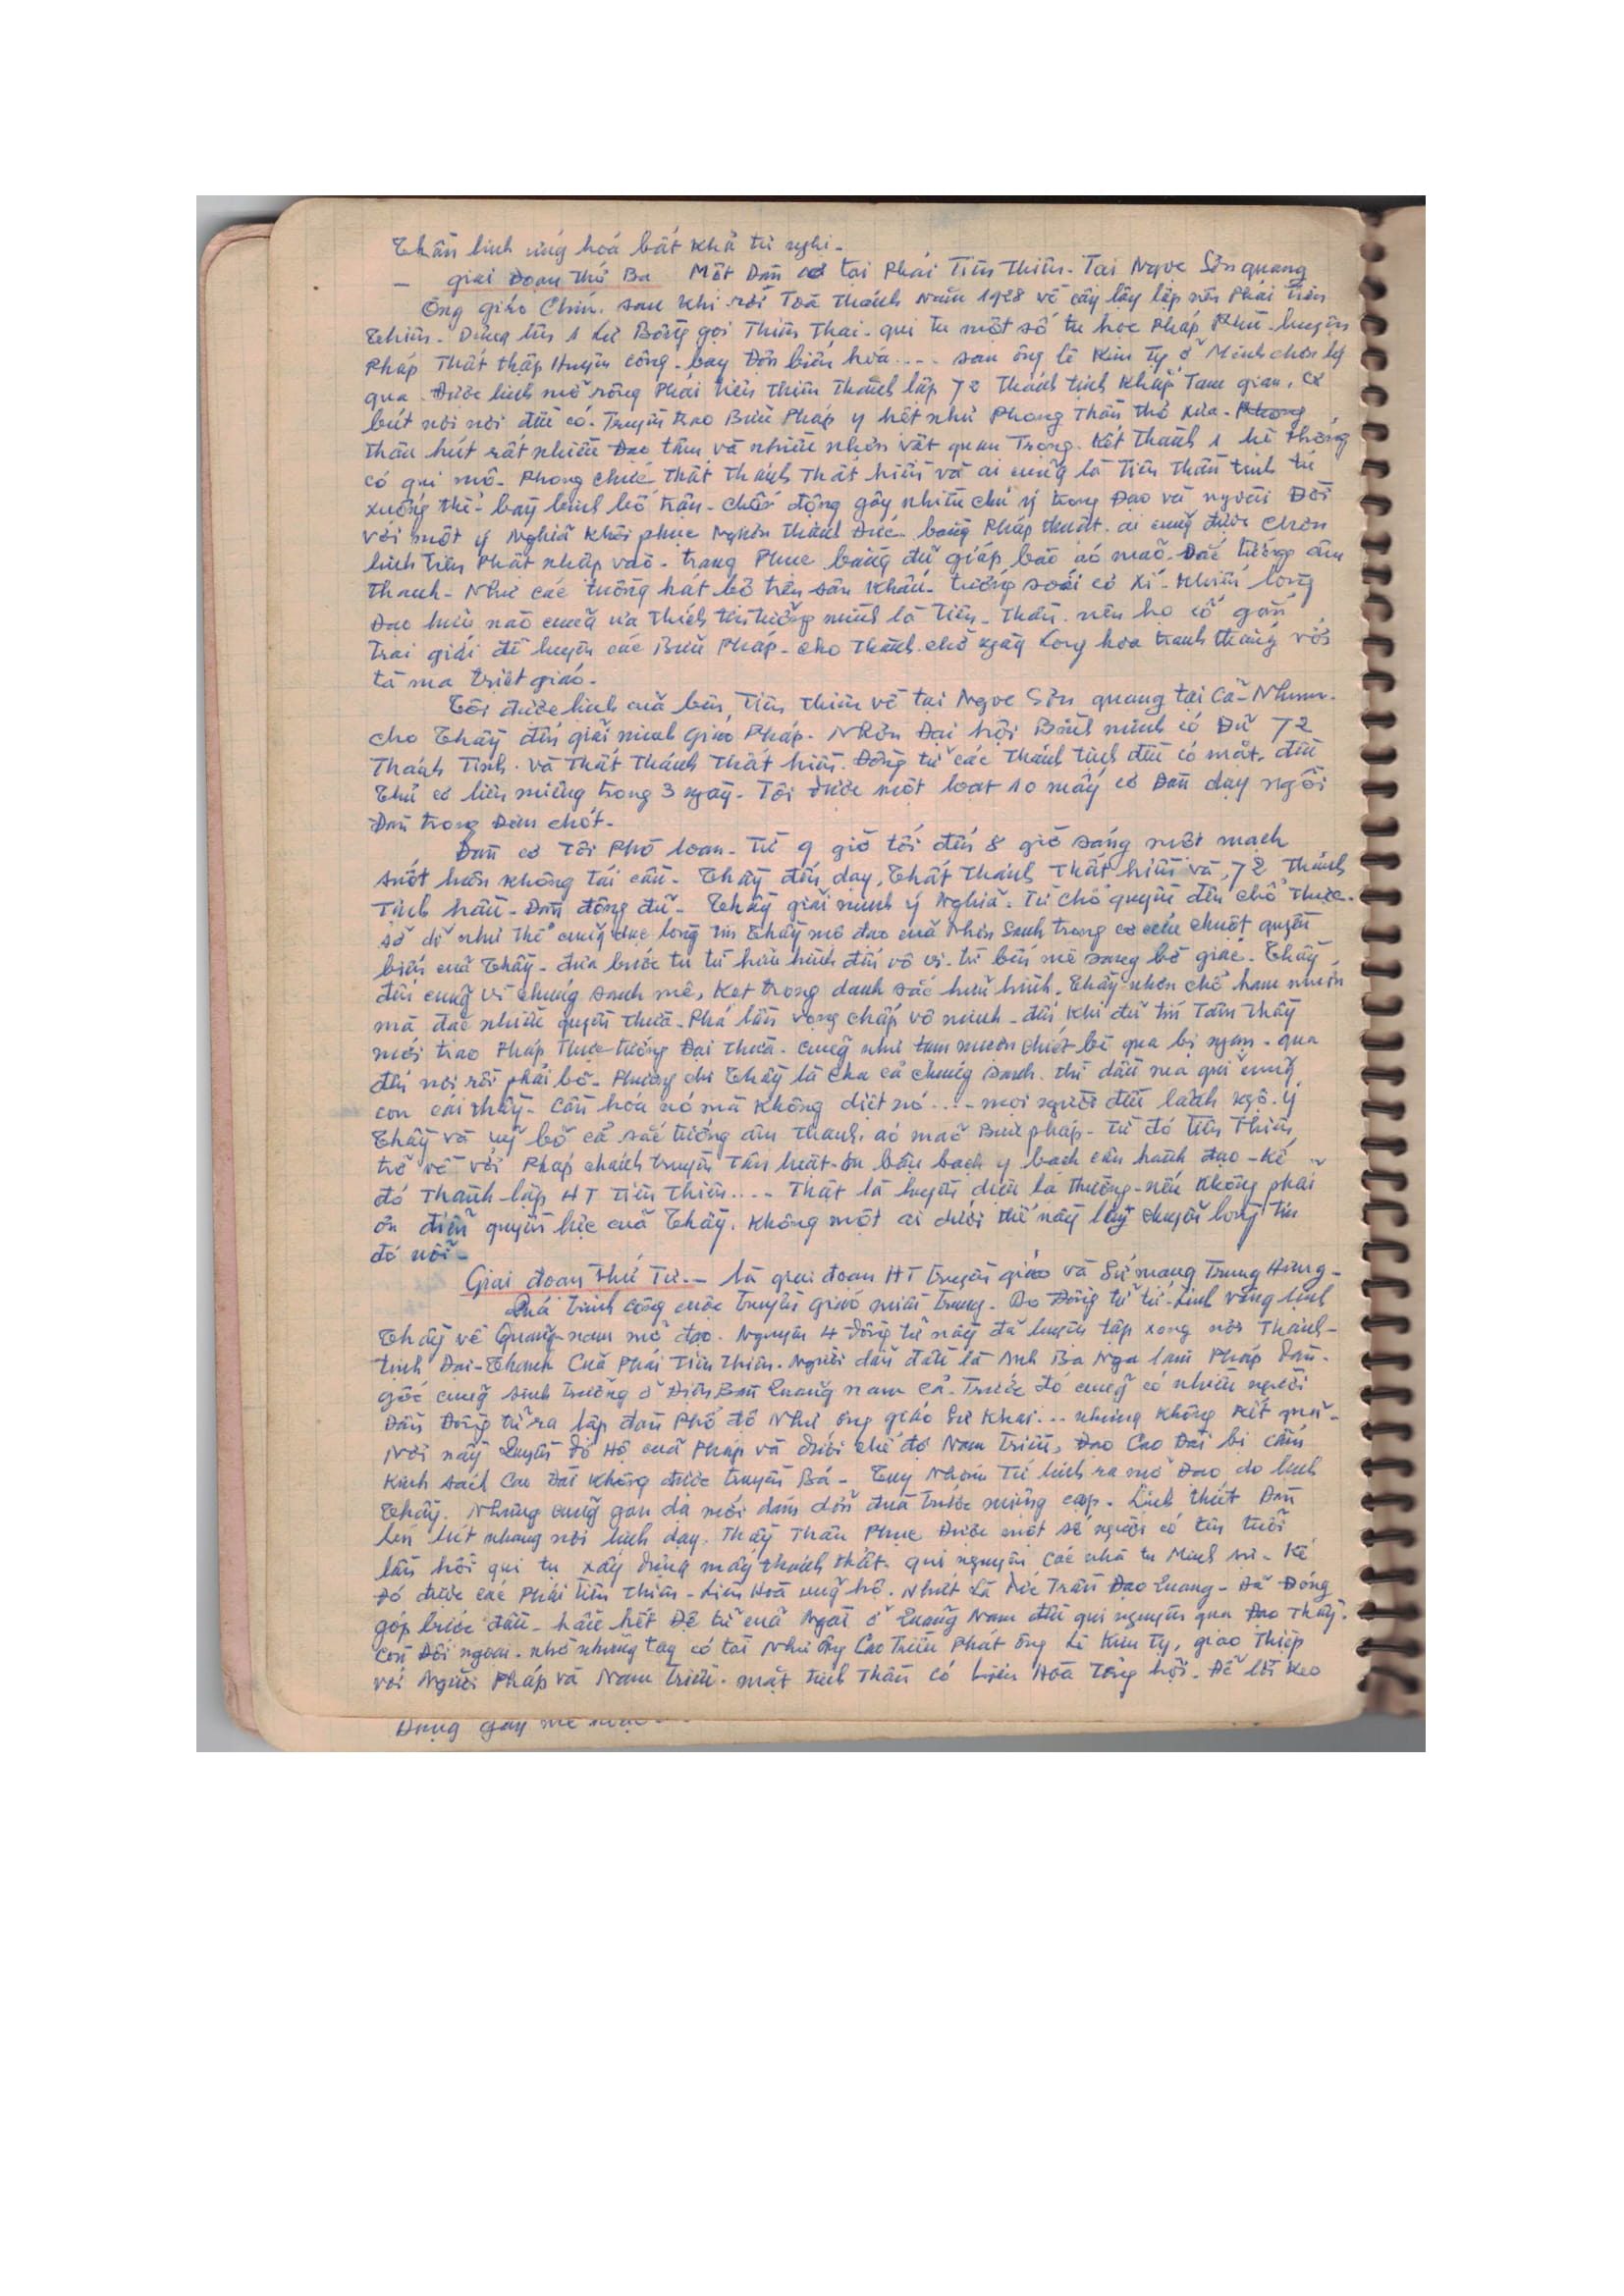 Thần linh ứng hoá bất khả tư nghì.
— giai Đoạn thứ Ba Một Đàn cơ tại Phái Tiên Thiên. Tại Ngọc Sơn quang
Ông giáo Chín. sau khi rời Toà Thánh Năm 1928 về cây lậy lập nên Phái Tiên
Thiên. Dựng lên 1 Lư Bồng gọi Thiên Thai. qui tụ một số tu học Pháp luyện
Pháp Thất thập Huyền công. bay Độn biến hoá.... sau ông lê Kim Tỵ ở Minh chơn lý
qua. Được linh mở rộng Phái Tiên Thiên Thành lập 72 Thánh tịnh khắp Tam giang, cơ
bút nơi nơi đều có. Truyền trao Bửu Pháp y hệt như Phong Thần thở xưa. Phong
Thâu hút rất nhiều Đạo tâm và nhiều nhơn vật quan Trọng. Kết Thành 1 hệ thống
có qui mô. Phong chức Thất Thánh Thất hiền và ai cũng là Tiên Thần tinh tú
xuống thế. bày binh bố trận. chấn động gây nhiều chú ý trong Đạo và ngoài Đời
với một ý Nghĩa khôi phục Nghiêu Thánh Đức. bằng Pháp thuật. ai cũng được chơn
linh Tiên Phật nhập vào. trang Phục bằng đủ giáp bào áo mão. Sắc tướng âm
thanh. Như các tuồng hát bộ trên sân khấu. tướng soái cờ xí. Khiến lòng
Đạo hữu nào cũng ưa thích tin tưởng mình là Tiên. Thần. nên họ cố gắn
trai giái để luyện các Bửu Pháp. cho Thành. chờ ngày Long hoa tranh thắng với
tà ma triệt giáo.
Tôi được linh của bên Tiên Thiên về tại Ngọc Sơn quang tại Cái Nhum.
cho Thầy đến giải minh Giáo Pháp. Nhơn Đại hội Bính minh có Đủ 72
Thánh Tịnh. và Thất Thánh Thất hiền. Đồng tử các Thánh Tịnh đều có mặt. đều
Thủ cơ liên miêng trong 3 ngày. Tôi được một loạt 10 mấy cơ Đàn dạy ngồi
Đàn trong Đêm chót.
Đàn cơ Tôi Phò loan. Từ 9 giờ tối đến 8 giờ sáng một mạch
suốt luôn không tái cầu. Thầy đến dạy, Thất Thánh Thất hiền và 72 Thánh
Tịnh hầu. Đàn đông đủ. Thầy giải minh ý Nghĩa. Từ chỗ quyền đến chỗ thực.
sở dĩ như thế cũng dục lòng tin Thầy mở đạo của Nhơn Sanh trong cơ cứu chuột quyền
biến của Thầy. đưa bước tu từ hữu hình đến vô vi. từ bến mê sang bờ giác. Thầy
đến cũng vì chúng sanh mê, kẹt trong danh sắc hữu hình. Thầy nhơn chỗ ham muốn
mà đặt nhiều quyền thừa. Phá lần vọng chấp vô minh. đến khi đủ tin Tâm Thầy
mới trao Pháp Thực tướng Đại thừa. cũng như tạm mượn chiếc bè qua bị ngạn. qua
đến nơi rồi phải bỏ. Phương chi Thầy là Cha cả chúng sanh. thì dầu ma quỉ cũng
con cái thầy. cần hoá nó mà không diệt nó.... mọi người đều lảnh ngộ. ý
Thầy và hủy bỏ cả sắc tướng âm thanh. áo mão Bửu pháp. Từ đó Tiên Thiên
trở về với Pháp chánh truyền Tân luật. ăn bận bạch y bạch cân hành đạo. Kế
đó Thành lập HT Tiên Thiên.... Thật là huyền diệu lạ thường. nếu không phải
ân điển quyền lực của Thầy. Không một ai dưới thế nầy lay chuyển lòng tin
đó nổi.
Giai đoạn thứ Tư.— là giai đoạn HT truyền giáo và Sứ mạng Trung Hưng.
Quá trình công cuộc truyền giáo miền trung. Do Đồng tử tứ linh vâng lịnh
Thầy về Quảng nam mở đạo. Nguyên 4 đồng tử nầy đã luyện tập xong nơi Thánh.
tịnh Đại-Thanh Của Phái Tiên Thiên. Người dẫn đầu là Anh Ba Nga làm Pháp đàn.
gốc cũng sinh trưởng ở Điện Bàn Quảng nam cả. Trước đó cũng có nhiều người
Dẫn Đồng tử ra lập đàn Phổ độ Như ông giáo Sư Khai... nhưng không kết quả.
Nơi nầy Quyền đô Hộ của Pháp và dưới chế độ Nam Triều, Đạo Cao Đài bị cấm
Kinh sách Cao Đài không được truyền Bá. Tuy Nhóm Tứ linh ra mở Đạo do linh
Thầy. Nhưng cũng gan dạ mới dám dấn đưa trước miệng cọp. Linh thiết Đàn
lén lút nhưng nơi linh dạy. Thầy Thâu Phục Được một số người có tên tuổi
lần hồi qui tụ xây dựng mấy thánh thất. qui nguyên các nhà tu Minh sư. Kế
Đó được các Phái Tiên Thiên - Liên Hoà ủng hộ. Nhứt Là Đức Trần Đạo Quang. Đã Đóng
góp bước đầu. hầu hết Đệ tử của Ngài ở Quảng Nam đều qui nguyên qua Đạo Thầy.
còn Đối ngoại. nhờ những tay có tài Như ông Cao Triều Phát ông Lê Kim Tỵ, giao Thiệp
với Người Pháp và Nam Triều. mặt tinh Thần có Liên Hoà Tổng hội. Để lôi kéo